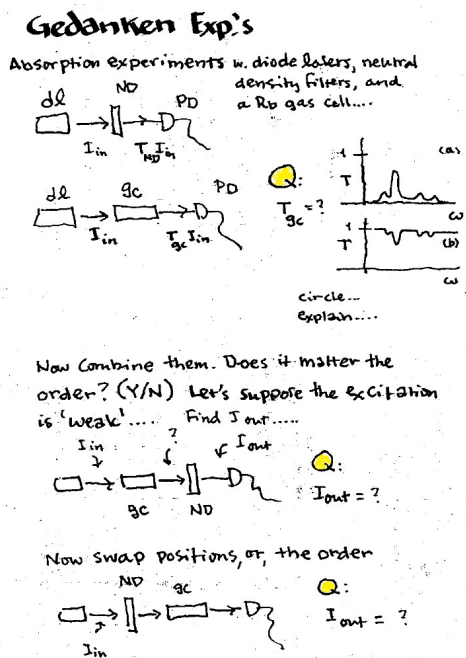 Gedanken Exp.'s
Absorption experiments w. diode lasers, neutral
density filters, and
a Rb gas cell....
dl ND PD
I in T ND I in
dl gc PD
I in T gc I in
Q:
T gc = ?
1 T (a)
ω
1 T (b)
ω
circle...
explain....
Now combine them. Does it matter the
order? (Y/N) Let's suppose the excitation
is 'weak'..... Find I out.....
I in ? I out
gc ND
Q:
I out = ?
Now swap positions, or, the order
ND gc
I in
Q:
I out = ?